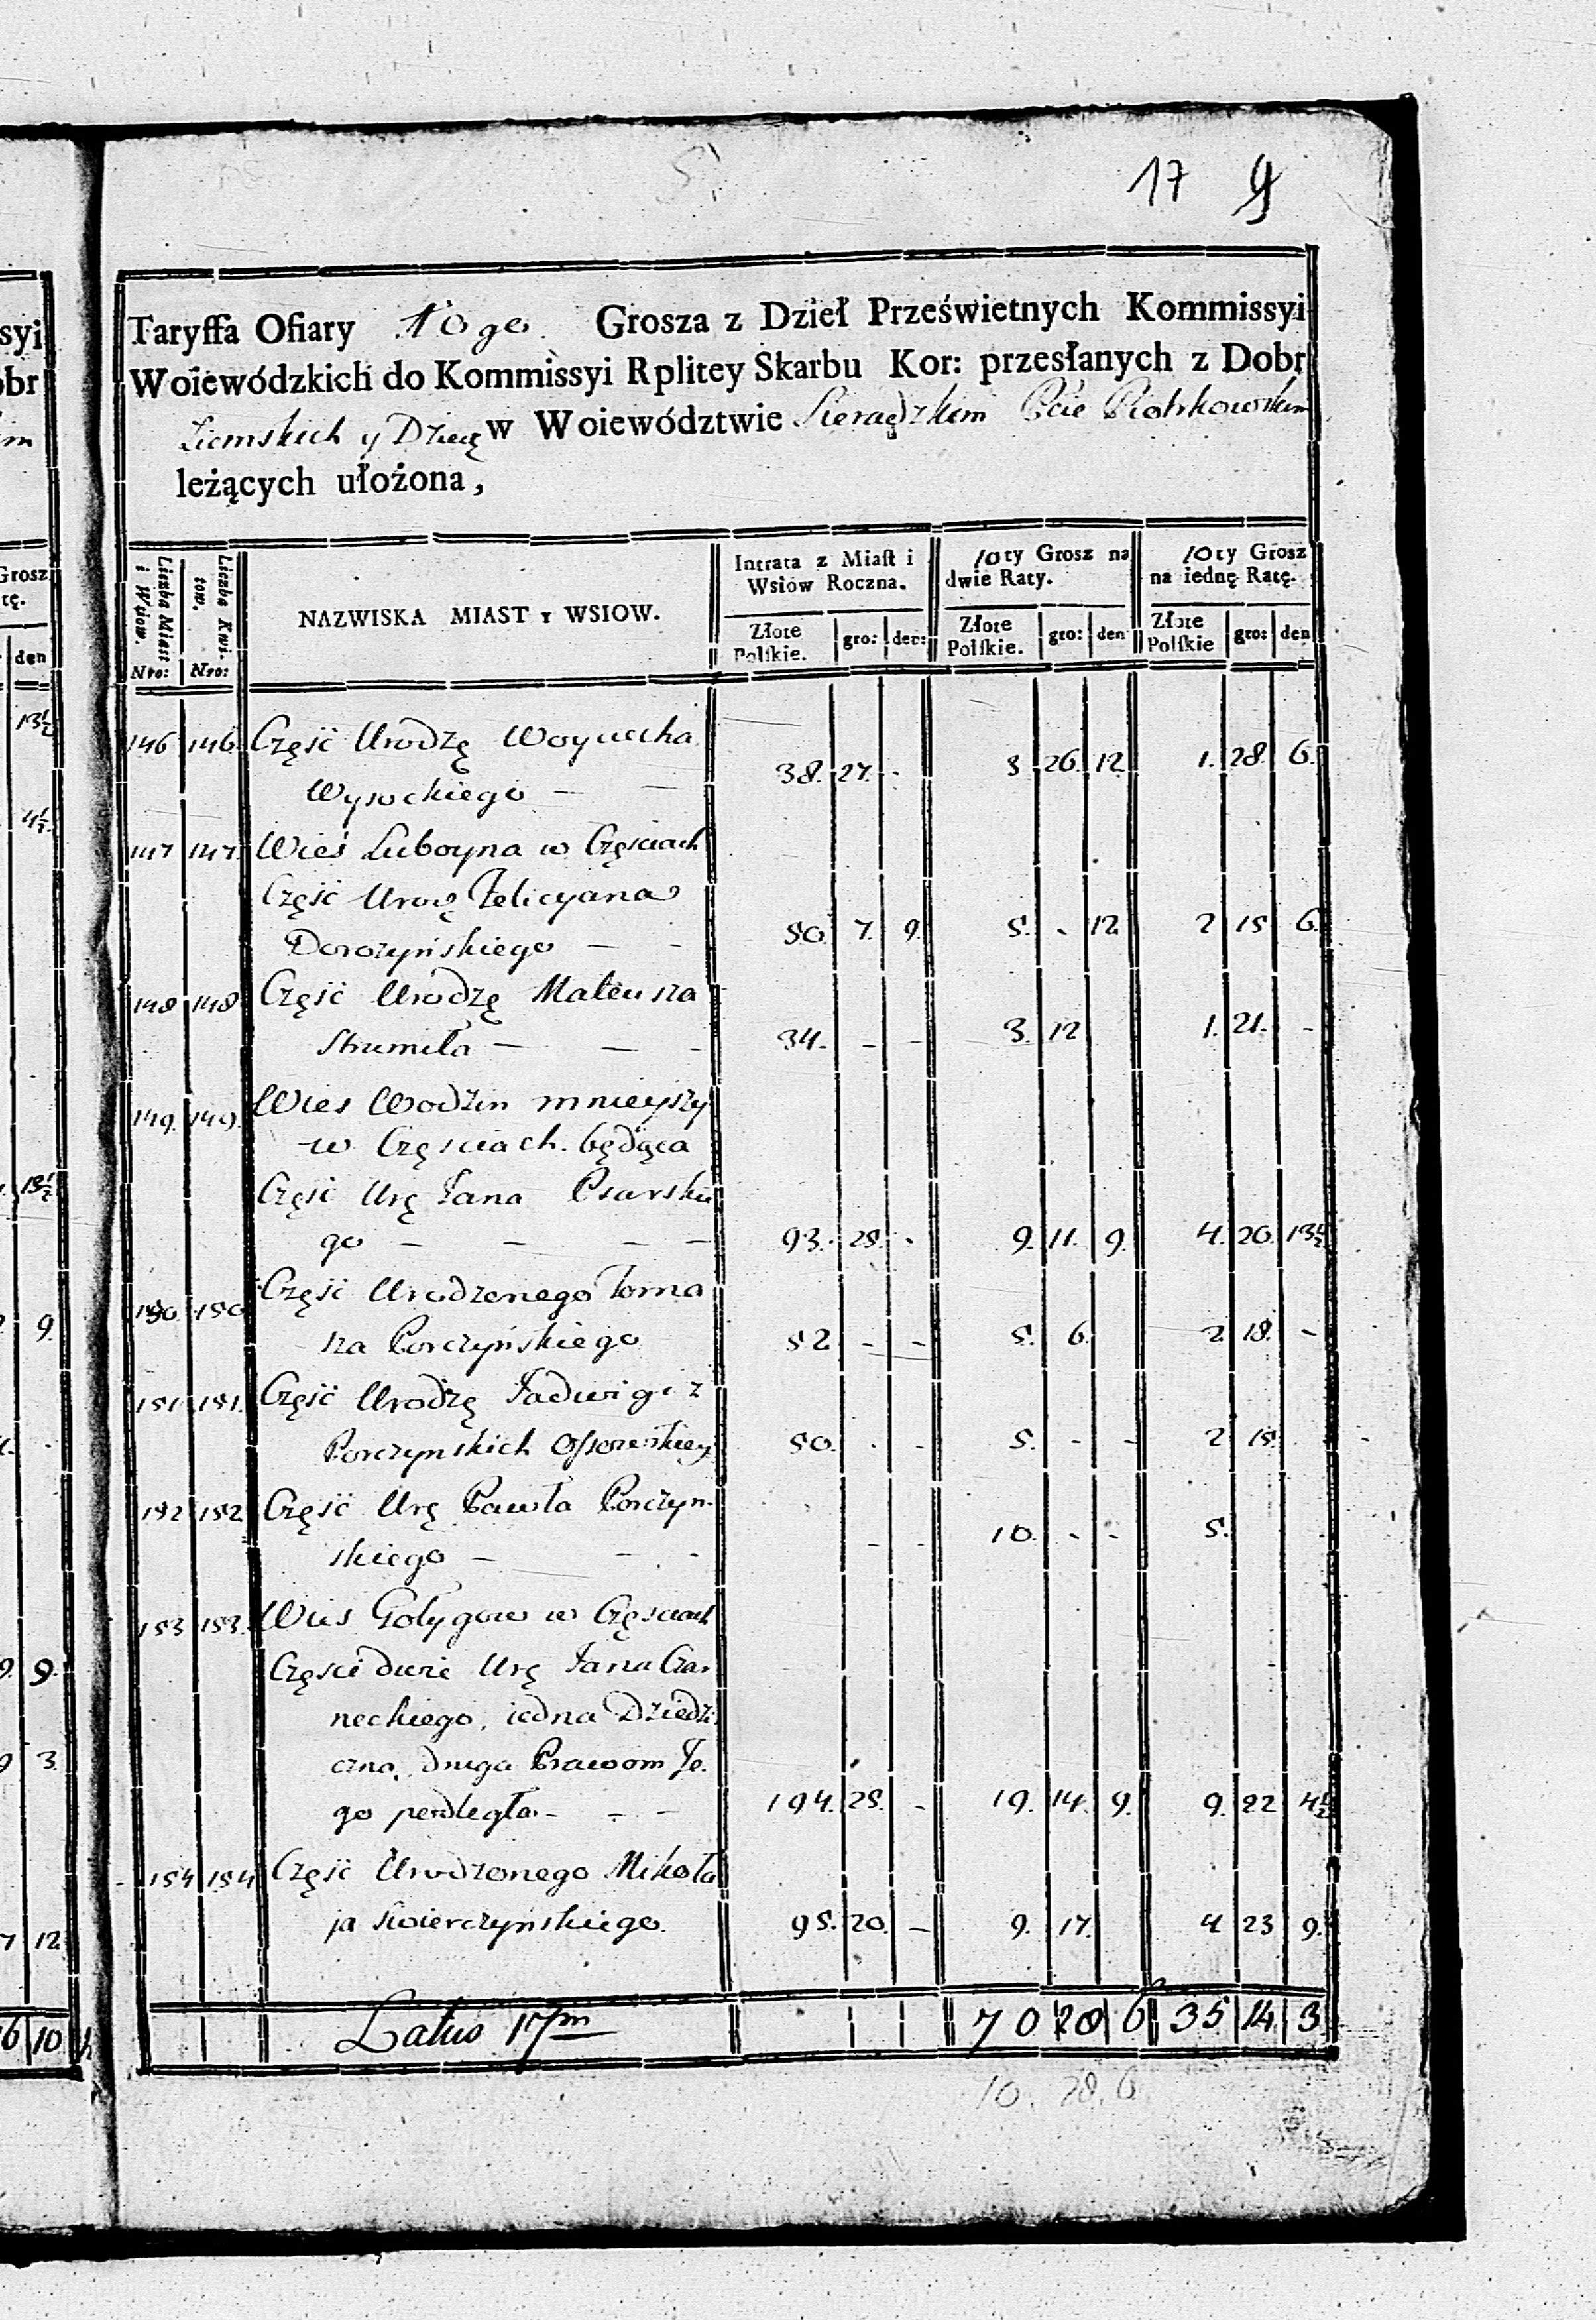 17 9
Taryffa Ofiary 10go Grosza z Dzieł Prześwietnych Kommissyi
Woiewódzkich do Kommissyi Rplitey Skarbu Kor: przesłanych z Dobr
Ziemskich y Dzied w Woiewództwie Sieradzkim Pcie Piotrkowskim
leżących ułożona,
Liczba Miast i Wsiow. Nro: Liczba Kwitow. Nro: NAZWISKA MIAST y WSIOW. Intrata z Miast i Wsiów Roczna. 10ty Grosz na dwie Raty. 10ty Grosz na iednę Ratę.
Złote Polskie. gro: der: Złote Polskie. gro: den Złote Polskie gro: den
146 146 Część Urodzę Woyciecha
Wysockiego — — 38. 27. - 3 26. 12 1. 28. 6.
147 147. Wieś Luboyna w Częsciach
Część Urodz Felicyana
Dorozyńskiego — - 50. 7. 9. 5. - 12 2 15 6.
148 148 Część Urodzę Mateusza
Strumiła — — - 34. - - 3. 12 1. 21. -
149. 149. Wies Wodzin mnieyszy
w Częsciach. będąca
Część Urę Jana Psarskie
go — — — — 93. 28. - 9. 11. 9. 4. 20. 13½
150. 150 Część Urodzonego Toma
sza Porczyńskiego 52 - - 5. 6. 2 18. -
151. 151. Część Urodzę Jadwigi z
Porczynskich Ossowskiey 50. - - 5. - - 2 15.
152 152 Część Urę Pawła Porczyn-
skiego — - - - - 10. - - 5.
153 153. Wies Gołygow w Częsciach
Częsci dwie Urę Jana Czar
neckiego, iedna Dziedzi
czna, druga Prawom Je-
go podległa - - — 194. 28. - 19. 14. 9. 9. 22 4½
154 154 Część Urodzonego Mikoła
ja Swierczyńskiego. 95. 20. — 9. 17. 4 23 9.
Latus 17m 70 28 6 35 14. 3
10. 28. 6